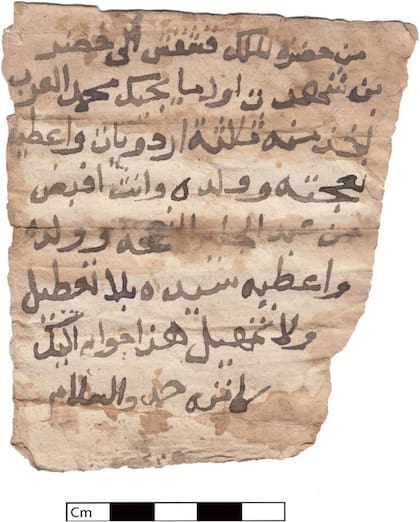 من حضرة الملك قشقش الى خضر
بن شهدت اوز ما يجيك محمد العرب
تاخذ منه ثلاثة اردويات واعطيه
نعجته وولده وانت اقبض
من عبد الجابر النعجة وولده
واعطيه سيده بلا تعطيل
ولا تمهيل هذا جوابي اليك
كاتبه حمد والسلام